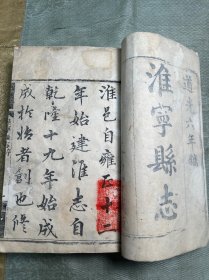 道六年鐫
淮寧縣志
淮邑自雍正十二
年始建淮志自
乾隆十九年始成
成於始者創也修